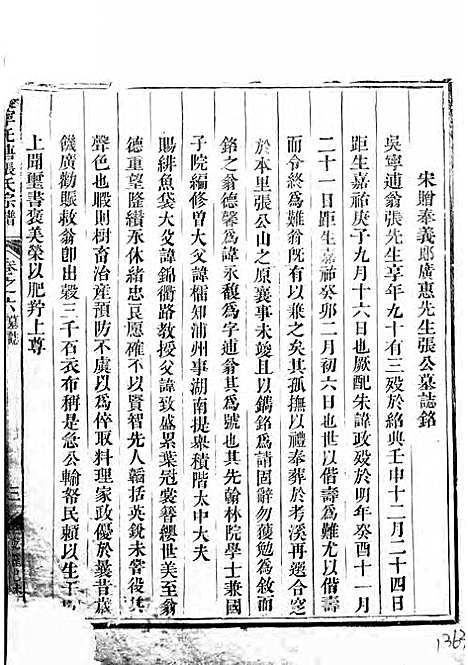 宋贈奉義郎廣惠先生張公墓誌銘
吳寧逋翁張先生享年九十有三殁於紹興壬申十二月二十四日
距生嘉祐庚子九月十六日也厥配朱諱政殁於明年癸酉十一月
二十一日距生嘉祐癸卯二月初六日也世以偕壽爲難尤以偕壽
而令終爲難翁則盡所以有以兼之矣其孤撫以禮奉葬於考溪再遷合窆
於本里張公山之原襄事未竣且以鐫銘爲請固辭勿獲勉爲敘而
銘之翁德馨爲諱永馥爲字逋翁其爲號也其先翰林院學士兼國
子院編修曾大父諱楀知浦州事湖南提舉積階太中大夫
賜緋魚袋大父諱錦衢路教授父諱致盛累葉冠裳簪纓世美至翁
德重望隆纘承休緒忠良愿願確不以賢智先人韜括英銳未嘗役其
聲色也暇則樹畜治產預防不虞以爲倅取料理家政優於曩昔歲
饑廣勸賑救翁卽出穀三千石衣布稱是急公輸帑民頼以生于
上聞璽書褒美榮以肥羜上尊
張氏宗譜
卷之六墓誌
136